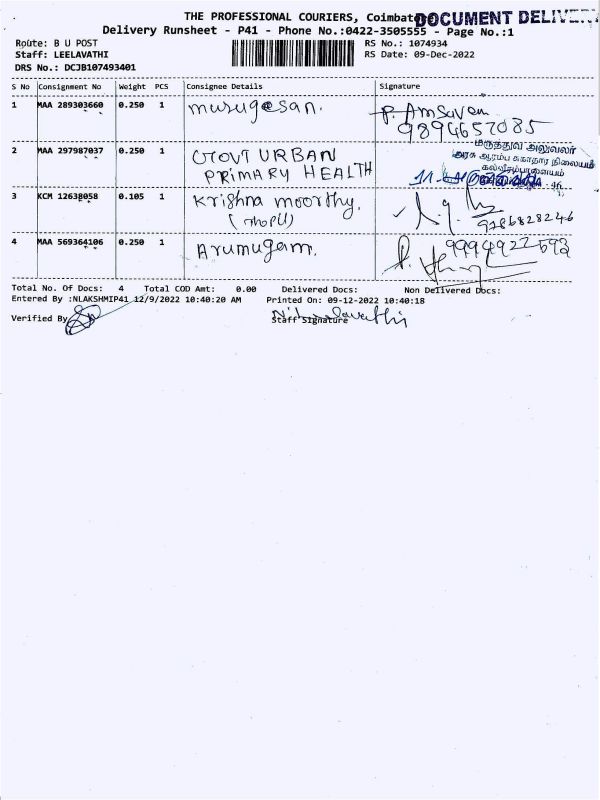 THE PROFESSIONAL COURIERS, Coimbatore
DOCUMENT DELIVERY
Delivery Runsheet - P41 - Phone No.:0422-3505555 - Page No.:1
Route: B U POST
RS No.: 1074934
Staff: LEELAVATHI
RS Date: 09-Dec-2022
DRS No.: DCJB107493401
S No Consignment No Weight PCS Consignee Details Signature
1 MAA 289303660 0.250 1 murugesan.
P. Amsaven
9894657085
2 MAA 297987037 0.250 1 GOVT URBAN
PRIMARY HEALTH
மருத்துவ அலுவலர்
அரசு ஆரம்ப சுகாதார நிலையம்
கல்வீரம்பாளையம்
46
3 KCM 12638058 0.105 1 Krishna moorthy.
9786828246
4 MAA 569364106 0.250 1 Arumugam.
9994922593
Total No. Of Docs: 4 Total COD Amt: 0.00 Delivered Docs: Non Delivered Docs:
Entered By :NLAKSHMIP41 12/9/2022 10:40:20 AM Printed On: 09-12-2022 10:40:18
Verified By
Staff Signature